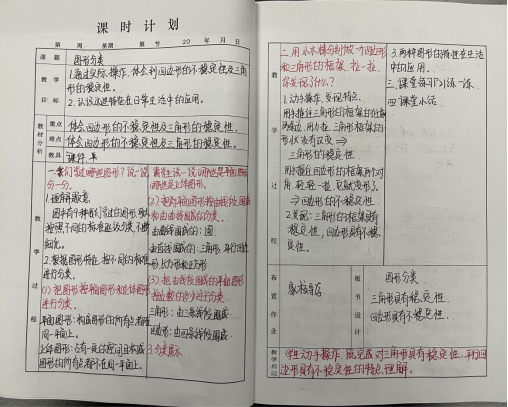 课时计划
第 周 星期 第 节 20 年 月 日
课题 图形分类
教学目标
1.通过实际操作,体会到四边形的不稳定性及三角
形的稳定性.
2.认识这些特征在日常生活中的应用.
教材分析
重点 体会四边形的不稳定性及三角形的稳定性.
难点 体会四边形的不稳定性及三角形的稳定性.
教具 课件
教学过程
一.我们学过哪些图形?说一说
分一分.
1.理解题意
按照不同的标准
2.根据图形特征,按不同的标准
进行分类.
(1)把图形按平面图形和立体图形
进行分类.
平面图形:构成图形的所有点都在
同一平面上.
立体图形:占有一定的空间且构成
图形的所有点都不在同一平面上.
(2)把平面图形按由线段围成
由曲线围成的:圆
由直线围成的:三角形,平行四边
形,长方形和正方形
(3)把由线段围成的平面图形
进行分类
三角形:由三条线段围成
四边形:由四条线段围成
3.分类展示
教学过程
二.用小木棒分别做一个四边形
和三角形的框架,拉一拉,
你发现了什么?
1.动手操作,发现特点.
用手推拉三角形的框架的任意
两边,用力拉,三角形框架的
形状没有改变⇒
三角形的稳定性.
用手推拉四边形的框架两个对
角,轻轻一拉,它就变形了.
⇒四边形的不稳定性.
2.发现:三角形的框架具有
稳定性,四边形具有不稳
定性.
3.两种图形的特性在生活
中的应用.
三.课堂练习,练一练.
四.课堂小结
布置作业
板书设计
图形分类
三角形具有稳定性.
四边形具有不稳定性.
教学后记
学生动手操作,能完成对三角形具有稳定性,平行四
边形具有不稳定性的特点理解.